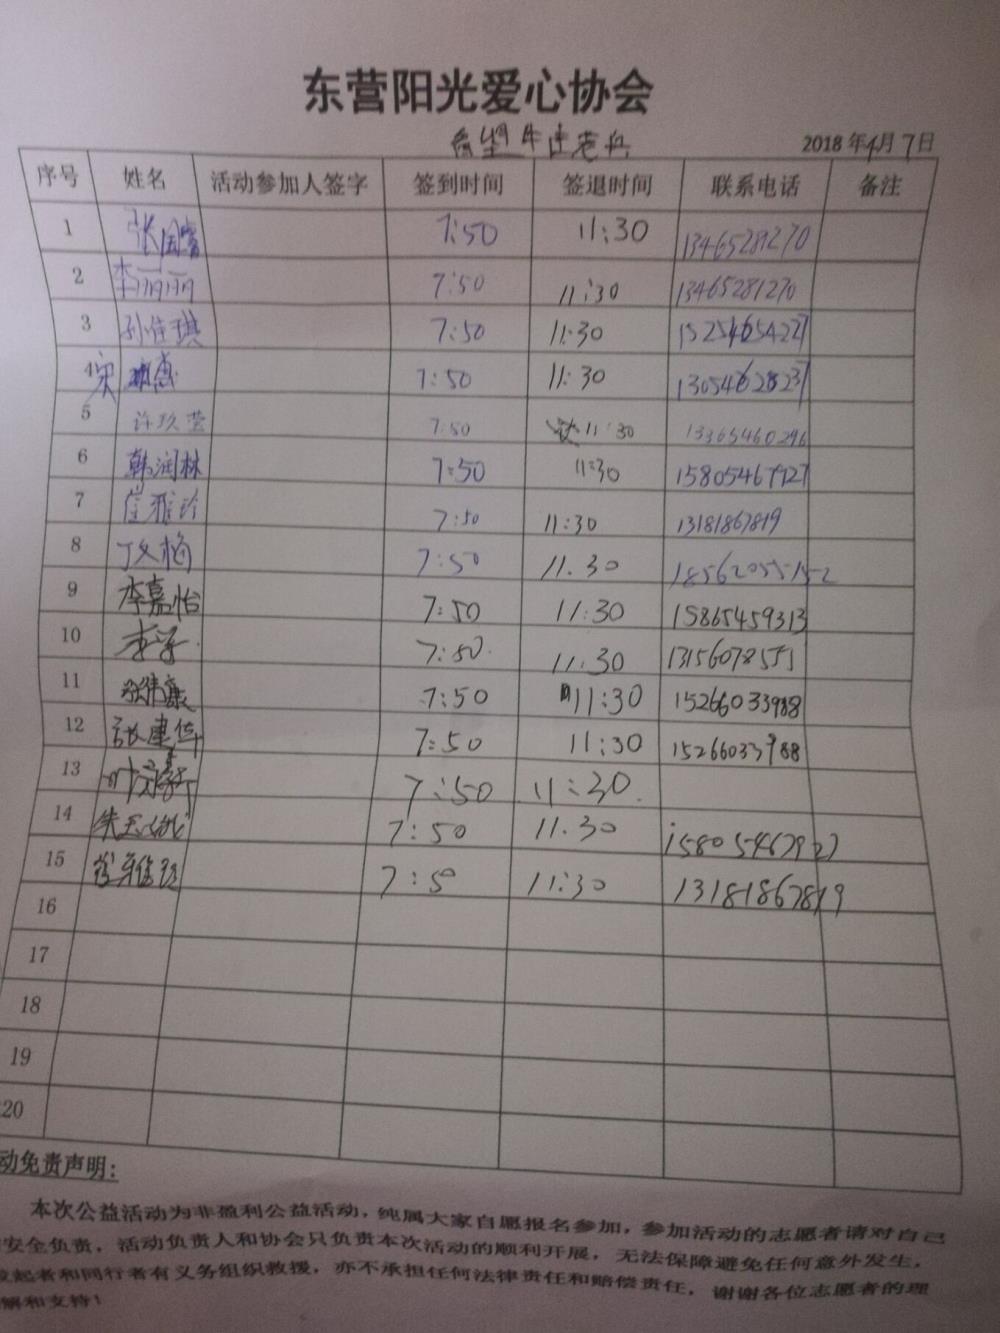 东营阳光爱心协会
2018年4月7日
序号 姓名 活动参加人签字 签到时间 签退时间 联系电话 备注
1 7:50 11:30 13465281270
2 李丽丽 7:50 11:30 13465281270
3 孙佳琪 7:50 11:30 15254654227
4 宋 7:50 11:30 13054628237
5 许玖莹 7:50 11:30 13365460296
6 韩润林 7:50 11:30 15805467927
7 崔雅玲 7:50 11:30 13181867819
8 丁文梅 7:50 11.30 18562055152
9 李嘉怡 7:50 11:30 15865459313
10 7:50. 11.30 13156078551
11 张伟康 7:50 11:30 15266033988
12 张建华 7:50 11:30 15266033988
13 7:50 11:30.
14 7:50 11.30 15805467927
15 7:50 11:30 13181867819
16
17
18
19
20
动免责声明:
本次公益活动为非盈利公益活动，纯属大家自愿报名参加，参加活动的志愿者请对自己
安全负责，活动负责人和协会只负责本次活动的顺利开展，无法保障避免任何意外发生，
起者和同行者有义务组织救援，亦不承担任何法律责任和赔偿责任，谢谢各位志愿者的理
解和支持！